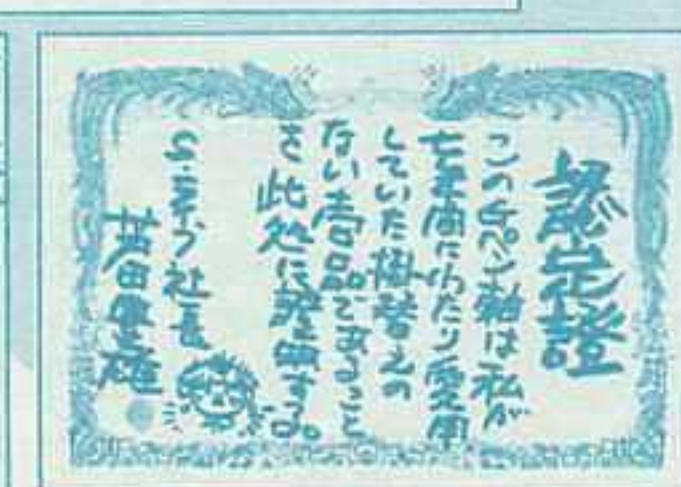 認定證
このGペン軸は私が
七年間にわたり愛用
していた掛替えの
ない壱品であること
を此処に証明する。
社長
田 雄